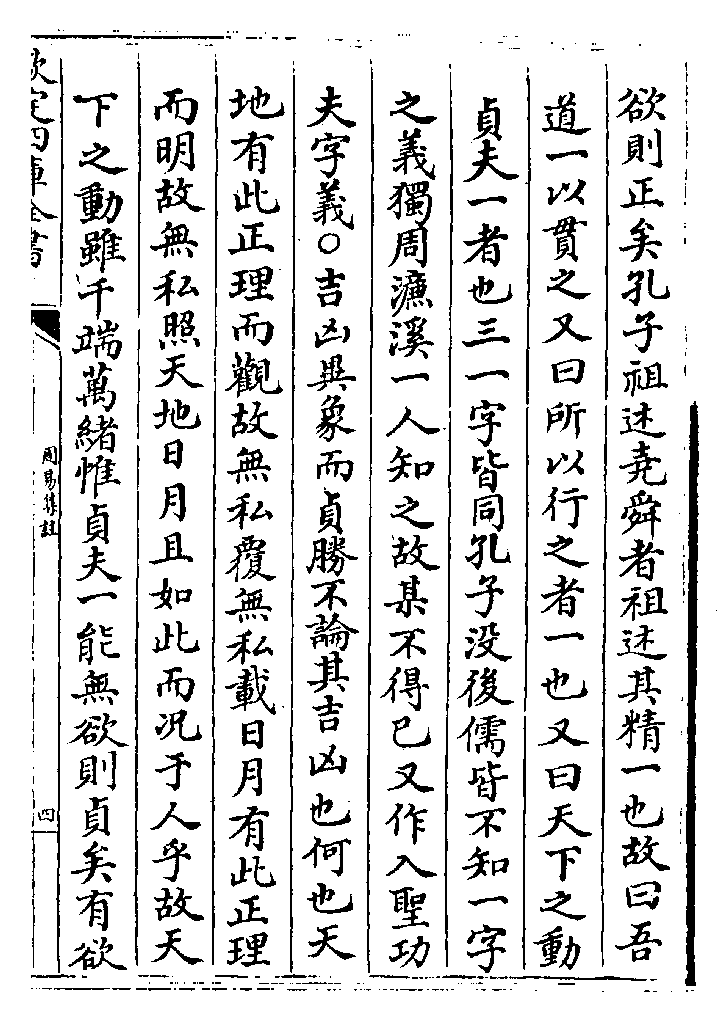 欲則正矣孔子祖述堯舜者祖述其精一也故曰吾
道一以貫之又曰所以行之者一也又曰天下之動
貞夫一者也三一字皆同孔子没後儒皆不知一字
之義獨周濂溪一人知之故某不得已又作入聖功
夫字義○吉凶異象而貞勝不論其吉凶也何也天
地有此正理而觀故無私覆無私載日月有此正理
而明故無私照天地日月且如此而况于人乎故天
下之動雖千端萬緒惟貞夫一能無欲則貞矣有欲
欽定四庫全書
周易集註
四